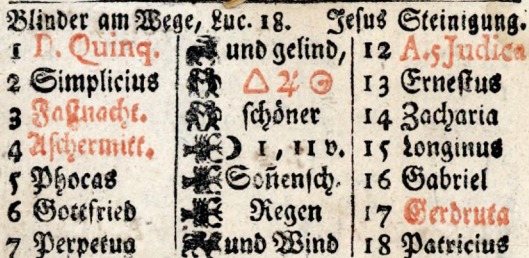 Blinder am Wege, Luc. 18. Jesus Steinigung.
1 D. Quinq. und gelind, 12 A. 5 Judica
2 Simplicius △ ♃ ☉ 13 Ernestus
3 Faßnacht. schöner 14 Zacharia
4 Aschermitt. ☽ 1, 11 v. 15 Longinus
5 Phocas Soñensch. 16 Gabriel
6 Gottfried Regen 17 Gerdruta
7 Perpetua und Wind 18 Patricius